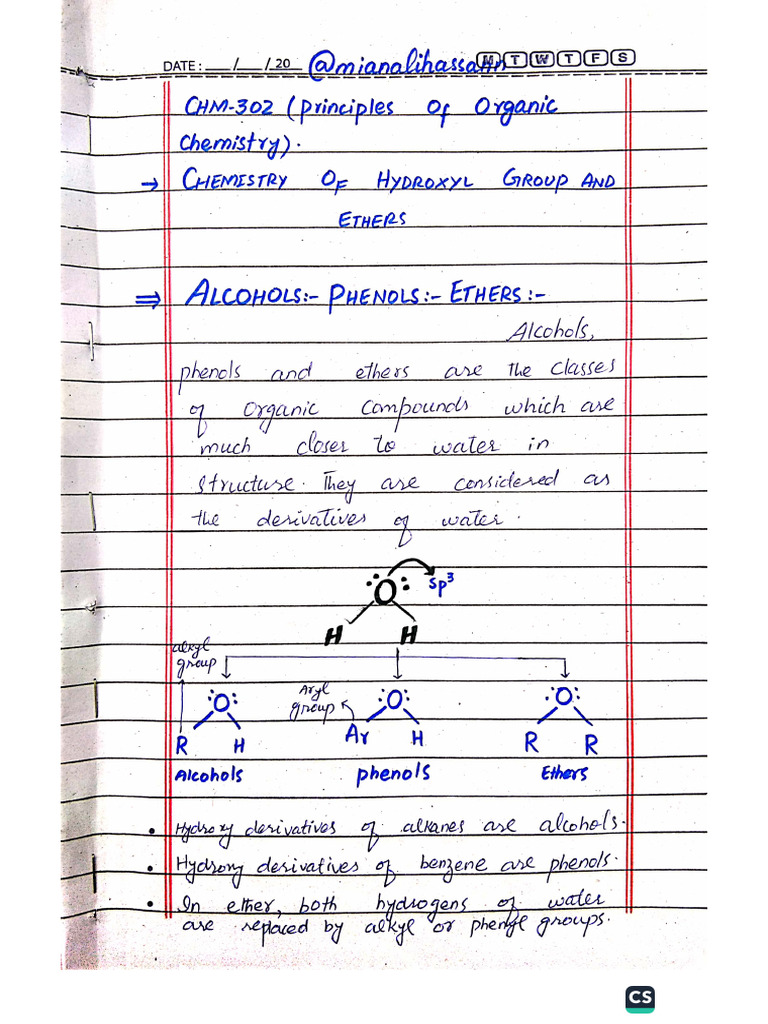 DATE: ___/___/20 @mianalihassann M T W T F S
CHM-302 (Principles Of Organic
Chemistry).
→ CHEMISTRY OF HYDROXYL GROUP AND
ETHERS
⇒ ALCOHOLS:- PHENOLS:- ETHERS:-
Alcohols,
phenols and ethers are the classes
of Organic Compounds which are
much closer to water in
structure. They are considered as
the derivatives of water.
:O: sp³
H H
alkyl
group
Aryl
group
:O: :O: :O:
R H Ar H R R
Alcohols phenols Ethers
• Hydroxy derivatives of alkanes are alcohols.
• Hydroxy derivatives of benzene are phenols.
• In ether, both hydrogens of water
are replaced by alkyl or phenyl groups.
CS